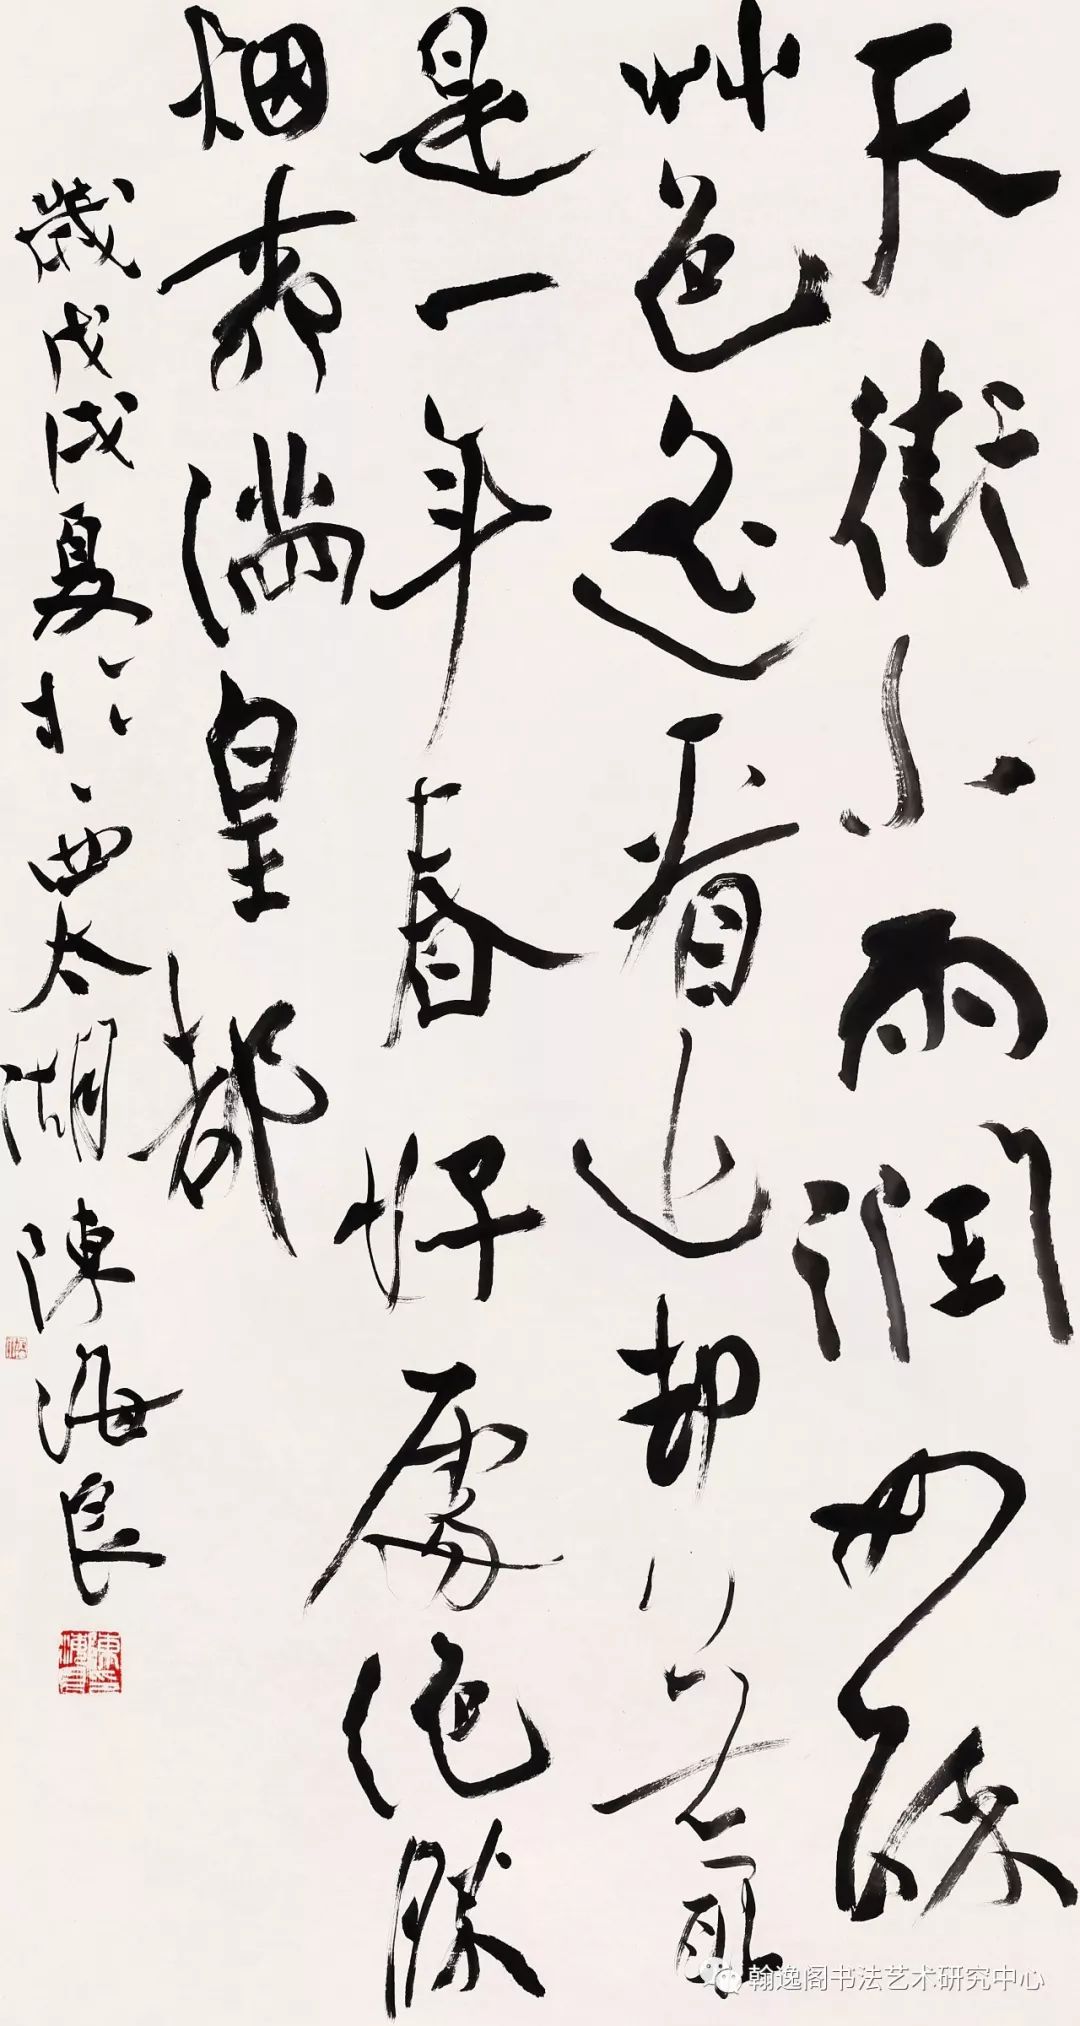 天街小雨潤如酥
艸色遥看近却無最
是一年春好處絶勝
烟柳滿皇都
歲戊戌夏於西太湖陳海良
翰逸阁书法艺术研究中心